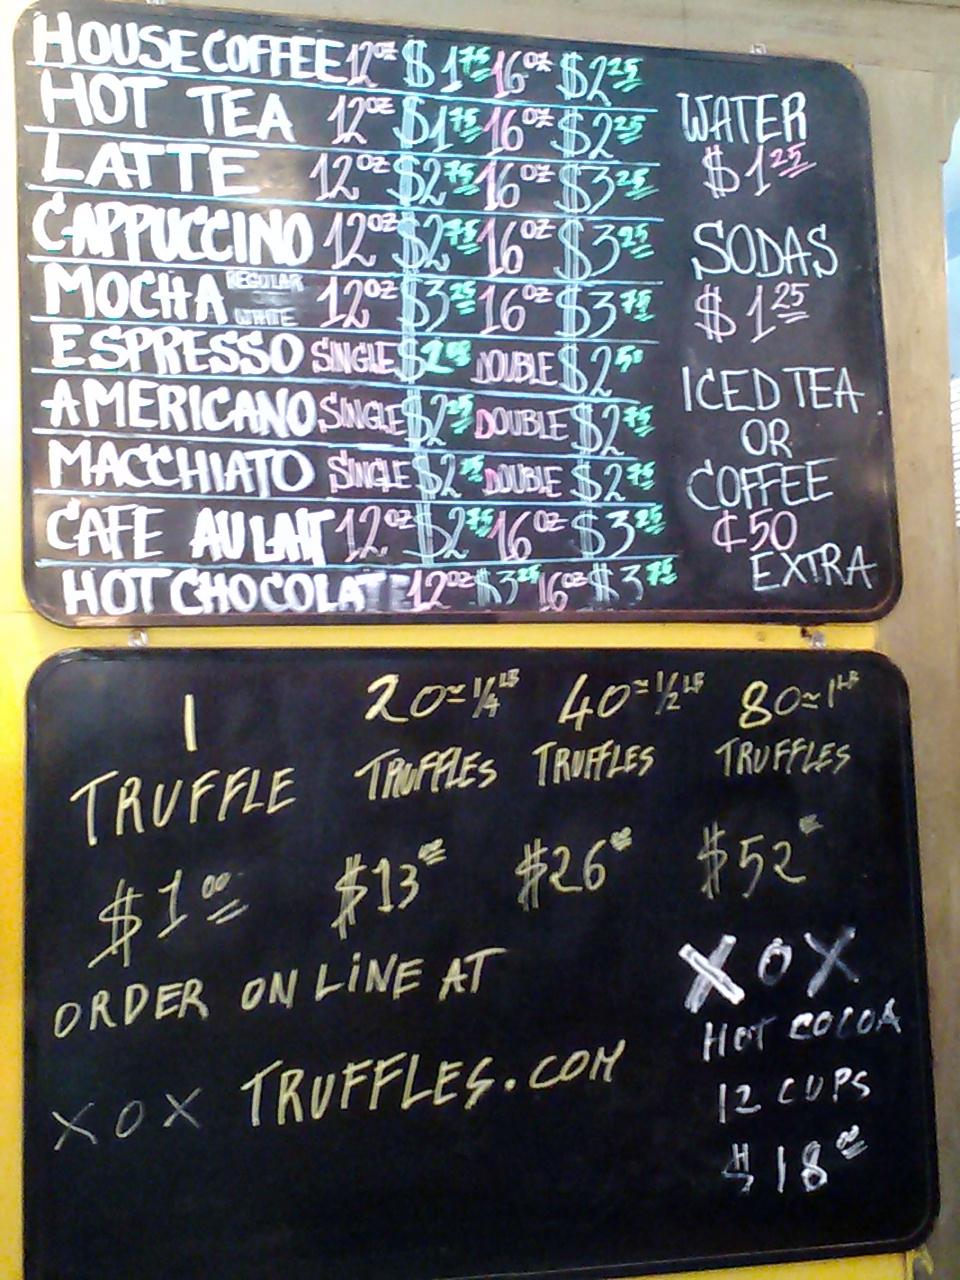 HOUSE COFFEE 12oz $1.75 16oz $2.25
HOT TEA 12oz $1.75 16oz $2.25
LATTE 12oz $2.75 16oz $3.25
CAPPUCCINO 12oz $2.75 16oz $3.25
MOCHA REGULAR WHITE 12oz $3.25 16oz $3.75
ESPRESSO SINGLE $2.00 DOUBLE $2.50
AMERICANO SINGLE $2.25 DOUBLE $2.75
MACCHIATO SINGLE $2.25 DOUBLE $2.75
CAFE AU LAIT 12oz $2.75 16oz $3.25
HOT CHOCOLATE 12oz $3.25 16oz $3.75
WATER
$1.25
SODAS
$1.25
ICED TEA
OR
COFFEE
¢50
EXTRA
1
TRUFFLE
$1.00
20≈1/4 LB
TRUFFLES
$13.00
40≈1/2 LB
TRUFFLES
$26.00
80≈1 LB
TRUFFLES
$52.00
ORDER ON LINE AT
XOX TRUFFLES.COM
XOX
HOT COCOA
12 CUPS
$18.00